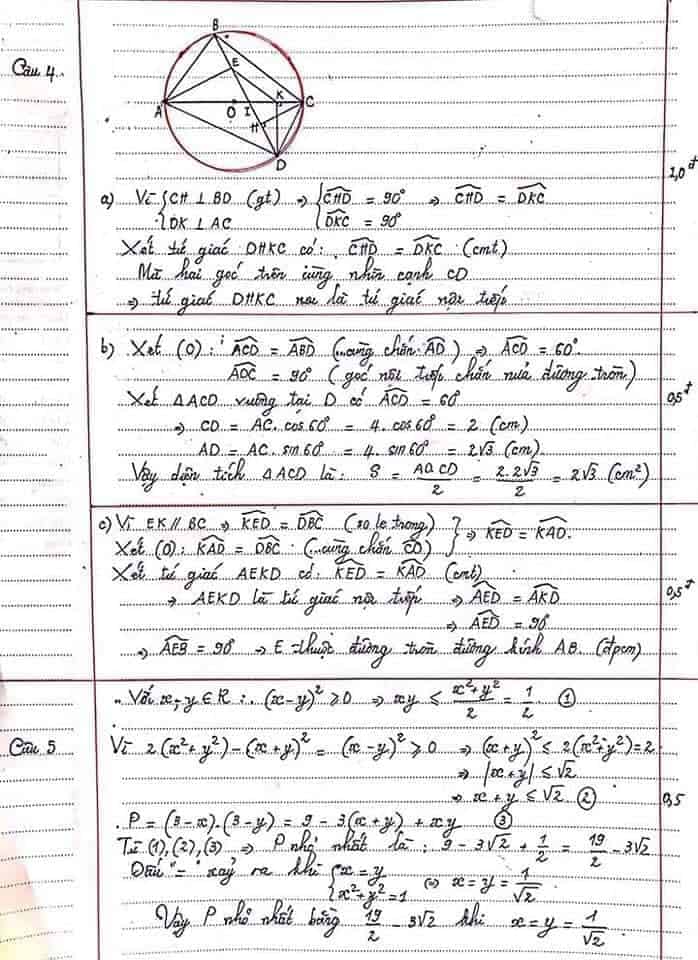 Câu 4.
B
E
A
O
I
K
C
H
D
1,0đ
a) Vì { CH ⊥ BD (gt) ⇒ { \widehat{CHD} = 90° ⇒ \widehat{CHD} = \widehat{DKC}
DK ⊥ AC \widehat{DKC} = 90°
Xét tứ giác DHKC có: \widehat{CHD} = \widehat{DKC} (cmt)
Mà hai góc trên cùng nhìn cạnh CD
⇒ tứ giác DHKC là tứ giác nội tiếp
b) Xét (O): \widehat{ACD} = \widehat{ABD} (...cùng chắn \widehat{AD}) ⇒ \widehat{ACD} = 60°.
\widehat{ADC} = 90° (góc nội tiếp chắn nửa đường tròn)
Xét ΔACD vuông tại D có \widehat{ACD} = 60°
0,5đ
⇒ CD = AC. cos 60° = 4. cos 60° = 2 (cm)
AD = AC. sin 60° = 4. sin 60° = 2√3 (cm).
Vậy diện tích ΔACD là: S = \frac{AD.CD}{2} = \frac{2.2√3}{2} = 2√3 (cm²)
c) Vì EK // BC ⇒ \widehat{KED} = \widehat{DBC} (so le trong) } ⇒ \widehat{KED} = \widehat{KAD}.
Xét (O): \widehat{KAD} = \widehat{DBC} (...cùng chắn \widehat{CD})
Xét tứ giác AEKD có: \widehat{KED} = \widehat{KAD} (cmt)
⇒ AEKD là tứ giác nội tiếp ⇒ \widehat{AED} = \widehat{AKD}
0,5đ
⇒ \widehat{AED} = 90°
⇒ \widehat{AEB} = 90° ⇒ E thuộc đường tròn đường kính AB. (đpcm)
Với x, y ∈ R: (x-y)² ≥ 0 ⇒ xy ≤ \frac{x²+y²}{2} = \frac{1}{2}. ①
Câu 5
Vì 2(x²+y²) - (x+y)² = (x-y)² ≥ 0 ⇒ (x+y)² ≤ 2(x²+y²) = 2
⇒ |x+y| ≤ √2
⇒ x+y ≤ √2 ②
0,5
. P = (3-x).(3-y) = 9 - 3(x+y) + xy ③
Từ (1), (2), (3) ⇒ P nhỏ nhất là: 9 - 3√2 + \frac{1}{2} = \frac{19}{2} - 3√2
Dấu "=" xảy ra khi { x = y
x²+y² = 1 ⇔ x = y = \frac{1}{√2}
Vậy P nhỏ nhất bằng \frac{19}{2} - 3√2 khi x = y = \frac{1}{√2}.